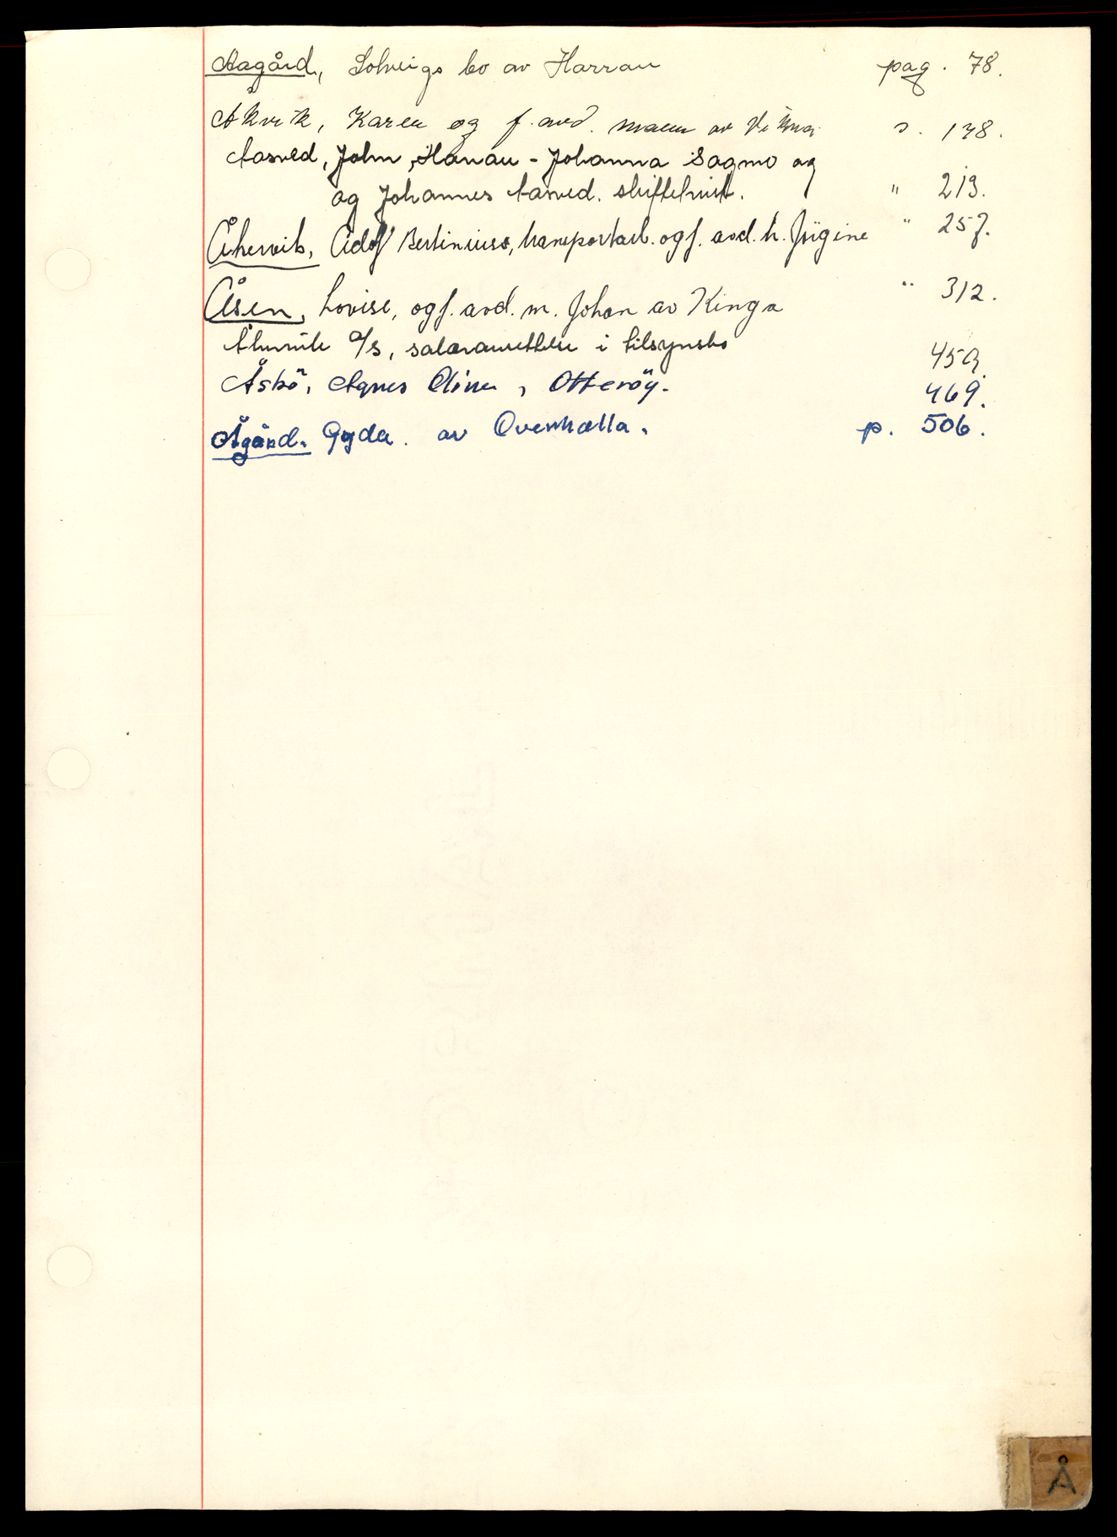 Aagård, Solveigs bo av Harran pag. 78.
Åkvik, Karen og f. avd. mann av Vikna s. 178.
Aasved, John, Hanau - Johanna Sagmo og
og Johannes Aasved. skiftetvist. " 219.
Åkervik, Adolf Bertinius, transportarb. og f. avd. h. Jørgine " 257.
Åsen, Lovise, og f. avd. m. Johan av Kinga " 312.
A/S, salæransettelse i tilsynsbo 459.
Åsbö, Agnes Oline, Otterøy. 469.
Ågård. Gyda. av Overhalla. p. 506.
Å